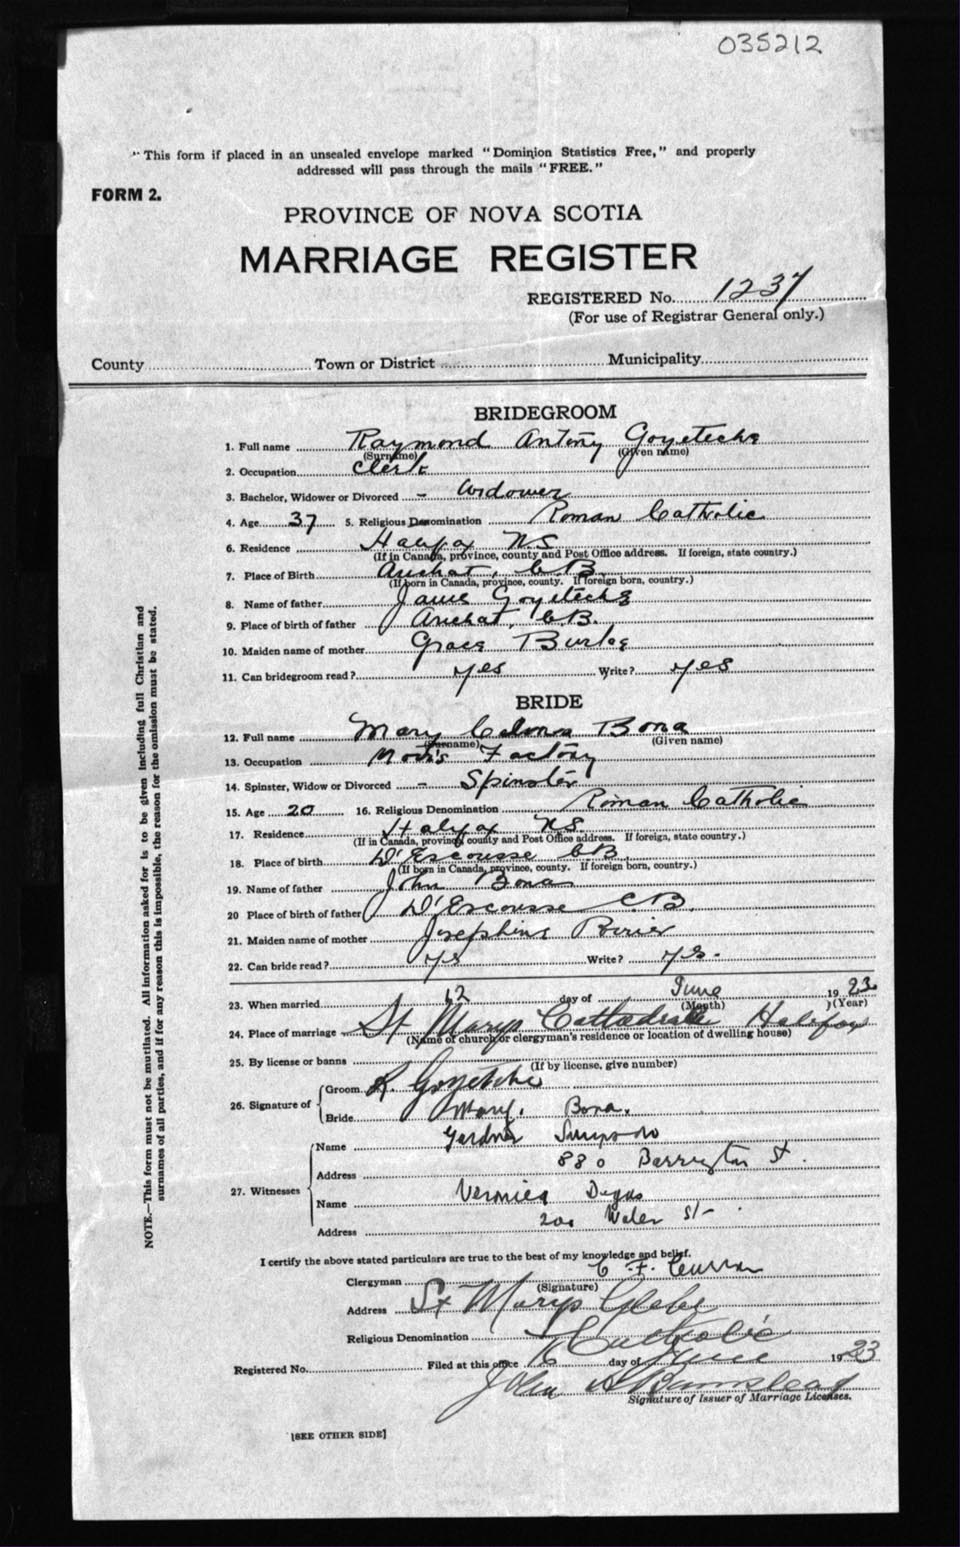 035212
"This form if placed in an unsealed envelope marked "Dominion Statistics Free," and properly
addressed will pass through the mails "FREE."
FORM 2.
PROVINCE OF NOVA SCOTIA
MARRIAGE REGISTER
REGISTERED No. 1237
(For use of Registrar General only.)
County Town or District Municipality
BRIDEGROOM
1. Full name Raymond Antony Goyetche
(Surname) (Given name)
2. Occupation Clerk
3. Bachelor, Widower or Divorced - Widower
4. Age 37 5. Religious Denomination Roman Catholic
6. Residence Halifax N.S.
(If in Canada, province, county and Post Office address. If foreign, state country.)
7. Place of Birth Arichat, C.B.
(If born in Canada, province, county. If foreign born, country.)
8. Name of father Goyetche
9. Place of birth of father Arichat, C.B.
10. Maiden name of mother Grace Burke
11. Can bridegroom read? yes Write? yes
BRIDE
12. Full name Mary Bona
(Surname) (Given name)
13. Occupation Factory
14. Spinster, Widow or Divorced - Spinster
15. Age 20 16. Religious Denomination Roman Catholic
17. Residence Halifax N.S.
(If in Canada, province, county and Post Office address. If foreign, state country.)
18. Place of birth D'Escousse C.B.
(If born in Canada, province, county. If foreign born, country.)
19. Name of father John Bona
20 Place of birth of father D'Escousse C.B.
21. Maiden name of mother Josephine Poirier
22. Can bride read? yes Write? yes.
23. When married 12 day of June 1923
(Month) (Year)
24. Place of marriage St Marys Cathedral Halifax
(Name of church or clergyman's residence or location of dwelling house)
25. By license or banns
(If by license, give number)
26. Signature of Groom R. Goyetche
Bride Mary. Bona.
27. Witnesses Name Simpson
Address 880 Barrington St.
Name Veronica
Address St.
I certify the above stated particulars are true to the best of my knowledge and belief.
Clergyman C. F. Curran
(Signature)
Address St Marys Glebe
Religious Denomination Catholic
Registered No. Filed at this office 16 day of June 1923
John A Bumstead
Signature of Issuer of Marriage Licenses.
[SEE OTHER SIDE]
NOTE.—This form must not be mutilated. All information asked for is to be given including full Christian and
surnames of all parties, and if for any reason this is impossible, the reason for the omission must be stated.